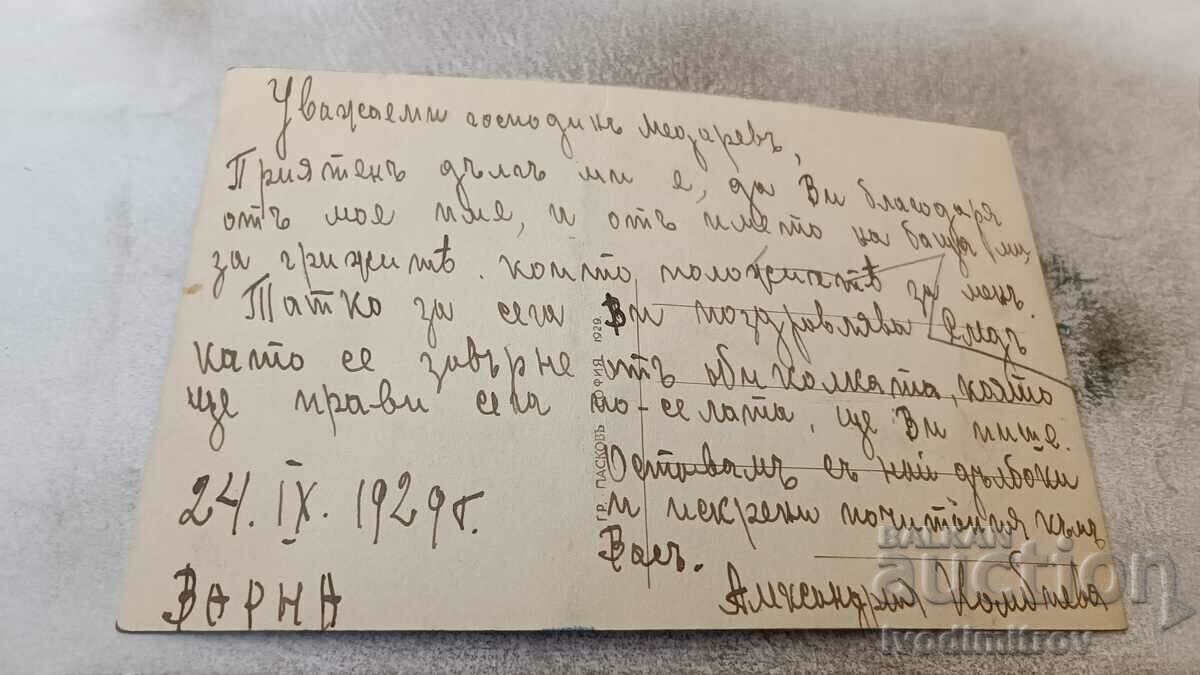 Уважаеми господинъ Медаревъ,
Приятенъ дългъ ми е, да Ви благодаря
отъ мое име, и отъ името на баща ми,
за грижитѣ, които положихтѣ за менъ.
Татко за сега Ви поздравлява
като се завърне отъ обиколката, която
ще прави сега по-селата, ще Ви пише.
Оставамъ съ най дълбоки
и искрени почитания къмъ
Васъ.
24. IX. 1929 г.
ВАРНА
Александра
ГР. ПАСКОВЪ СОФИЯ 1929.
BALKAN
auction
Ivodimitrov